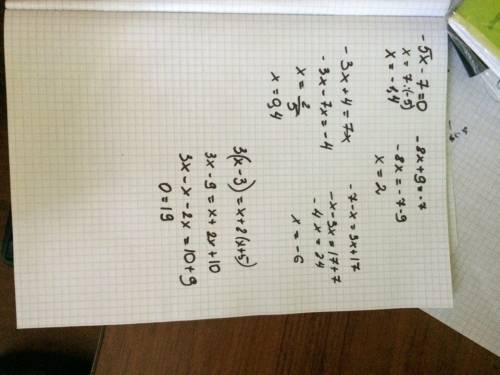 -5x-7=0
x=7:(-5)
x=-1,4
-8x+9=-7
-8x=-7-9
x=2
-3x+4=7x
-3x-7x=-4
x=2/5
x=0,4
-7-x=3x+17
-x-3x=17+7
-4x=24
x=-6
3(x-3)=x+2(x+5)
3x-9=x+2x+10
3x-x-2x=10+9
0=19